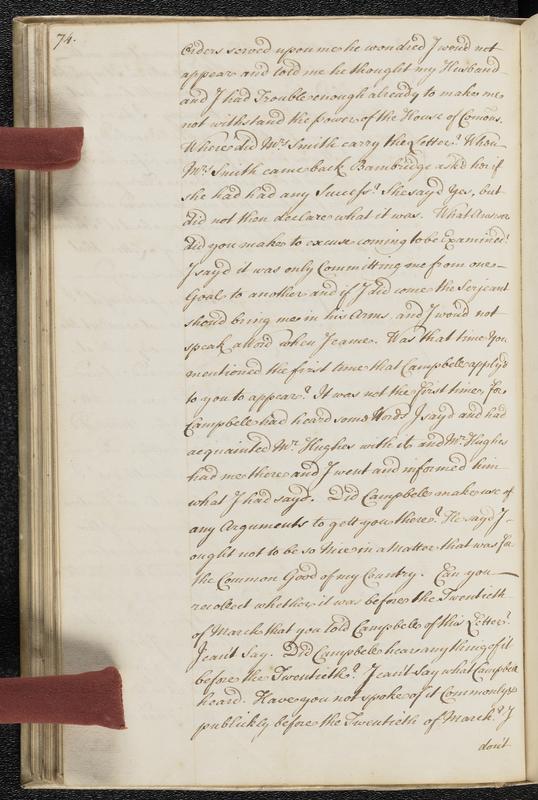 74.
Orders served upon me he wondred I woud not
appear and told me he thought my Husband
and I had Trouble enough already to make me
not withstand the power of the House of Comons.
Where did Mrs. Smith carry the Letter? When
Mrs. Smith came back Bambridge ask'd her if
she had had any Success? She sayd Yes, but
did not then declare what it was. What Answer
did you make to excuse coming to be Examined?
I sayd it was only Committing me from one
Goal to another and if I did come the Serjeant
shoud bring me in his Arms and I woud not
speak a word when I came. Was that time You
mentioned the first time that Campbele apply'd
to you to appear? It was not the first time, for
Campbele had heard some Words I sayd and had
acquainted Mr. Hughes with it and Mr. Hughes
had me there and I went and informed him
what I had sayd. Did Campbele make use of
any Arguments to gett you there? He sayd I
ought not to be so Nice in a Matter that was for
the Common Good of my Country. Can you
recollect whether it was before the Twentieth
of March that you told Campbele of this Letter?
I cant Say. Did Campbele hear any thing of it
before the Twentieth? I cant Say what Campbele
heard. Have you not spoke of it Commonly &
publickly before the Twentieth of March? I
don't